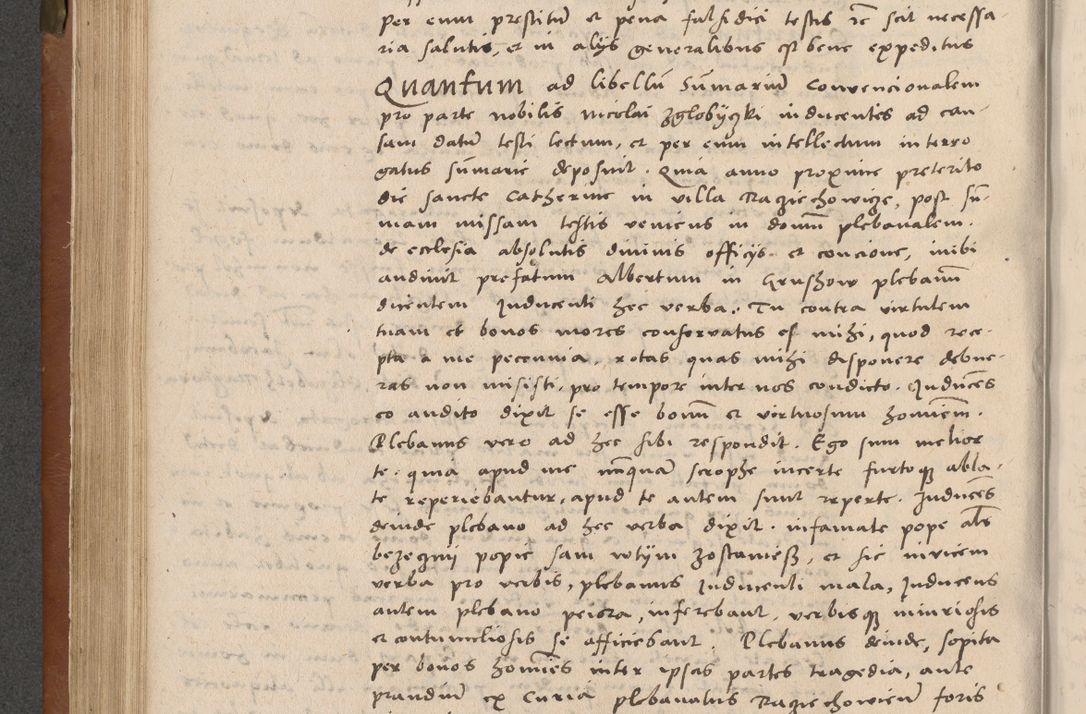 per eum prestitum et pena falsidici testis rem scit necessa-
ria salutis, et in alijs generalibus est bene expeditus
Quantum ad libellum Summarium Convencionalem
pro parte nobilis Nicolai Zglobyczki inducentis ad cau-
sam datum testi lectum, et per eum intellectum interro
gatus summarie deposuit. Quia anno proxime preterito
die sancte Catherine in villa Racziechowicze, post sum-
mam missam testis veniens in domum plebanalem.
de ecclesia absolutis divinis officijs et concione, inibi
audivit prefatum Albertum in Gruszow plebanum
dicentem Inducenti hec verba. Tu contra virtutem
tuam et bonos mores conservatus es mihi, quod rece-
pta a me peccunia, rotas quas mihi disponere debue-
ras non misisti, pro tempore inter nos condicto. Inducens
eo audito dixit se esse bonum et virtuosum hominem.
Plebanus vero ad hec sibi respondit. Ego sum melior
te. quia apud me nunquam scrophe incerte furtoque abla-
te reperiebantur, apud te autem sunt reperte. Inducens
deinde plebano ad hec verba dixit. infamate pope als
bezeczny popie sam wtym zostaniesz, et sic invicem
verba pro verbis, plebanus Inducenti mala, Inducens
autem plebano peiora, inferebant, verbisque iniuriosis
et contumeliosis se afficiebant. Plebanus deinde, sopita
per bonos homines inter ipsas partes tragedia, ante
prandium ex Curia plebanatus Racziechowicen foris